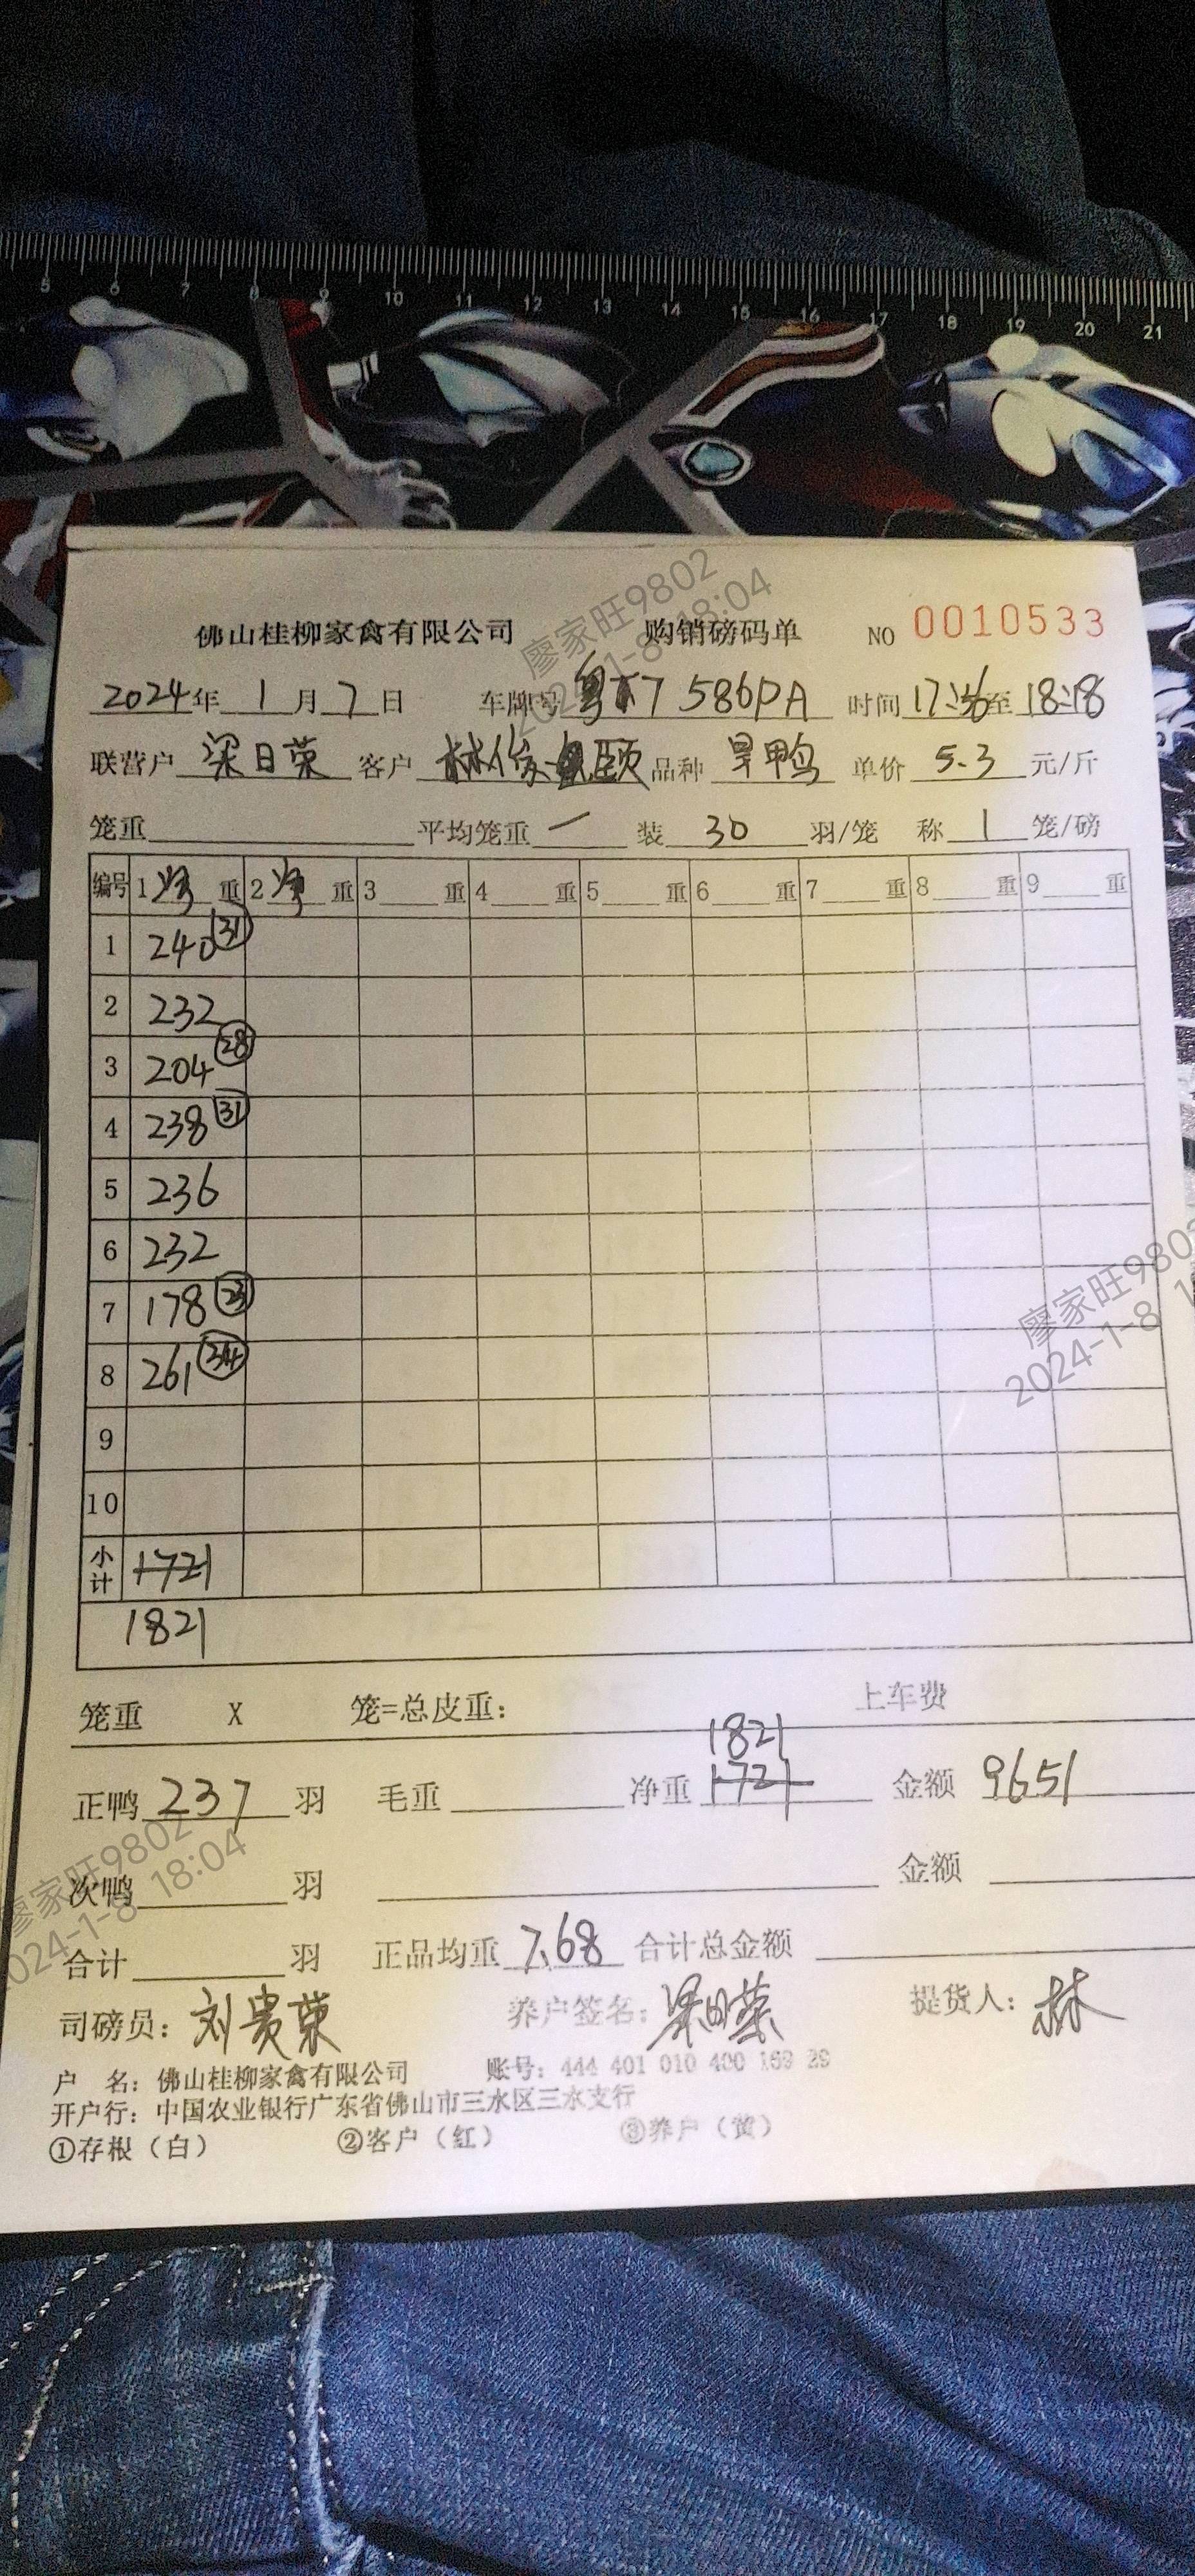 5 6 7 8 9 10 11 12 13 14 15 16 17 18 19 20 21
佛山桂柳家禽有限公司 购销磅码单 NO 0010533
2024年 1月 7日 车牌号 586PA 时间 17:56至 18:18
联营户 梁日荣 客户 林俊 颐 品种 旱鸭 单价 5.3 元/斤
笼重 平均笼重 一 装 30 羽/笼 称 1 笼/磅
编号 1 净 重 2 净 重 3 重 4 重 5 重 6 重 7 重 8 重 9 重
1 240 31
2 232
3 204 28
4 238 31
5 236
6 232
7 178 23
8 261 34
9
10
小计 1721
1821
笼重 X 笼=总皮重: 上车费
1821
正鸭 237 羽 毛重 净重 1721 金额 9651
次鸭 羽 金额
合计 羽 正品均重 7.68 合计总金额
司磅员: 刘贵荣 养户签名: 梁日荣 提货人: 林
户 名: 佛山桂柳家禽有限公司 账号: 444 401 010 400 169 29
开户行: 中国农业银行广东省佛山市三水区三水支行
①存根(白) ②客户(红) ③养户(黄)
廖家旺9802
2024-1-8 18:04
廖家旺9802
2024-1-8 1
廖家旺9802
2024-1-8 18:04